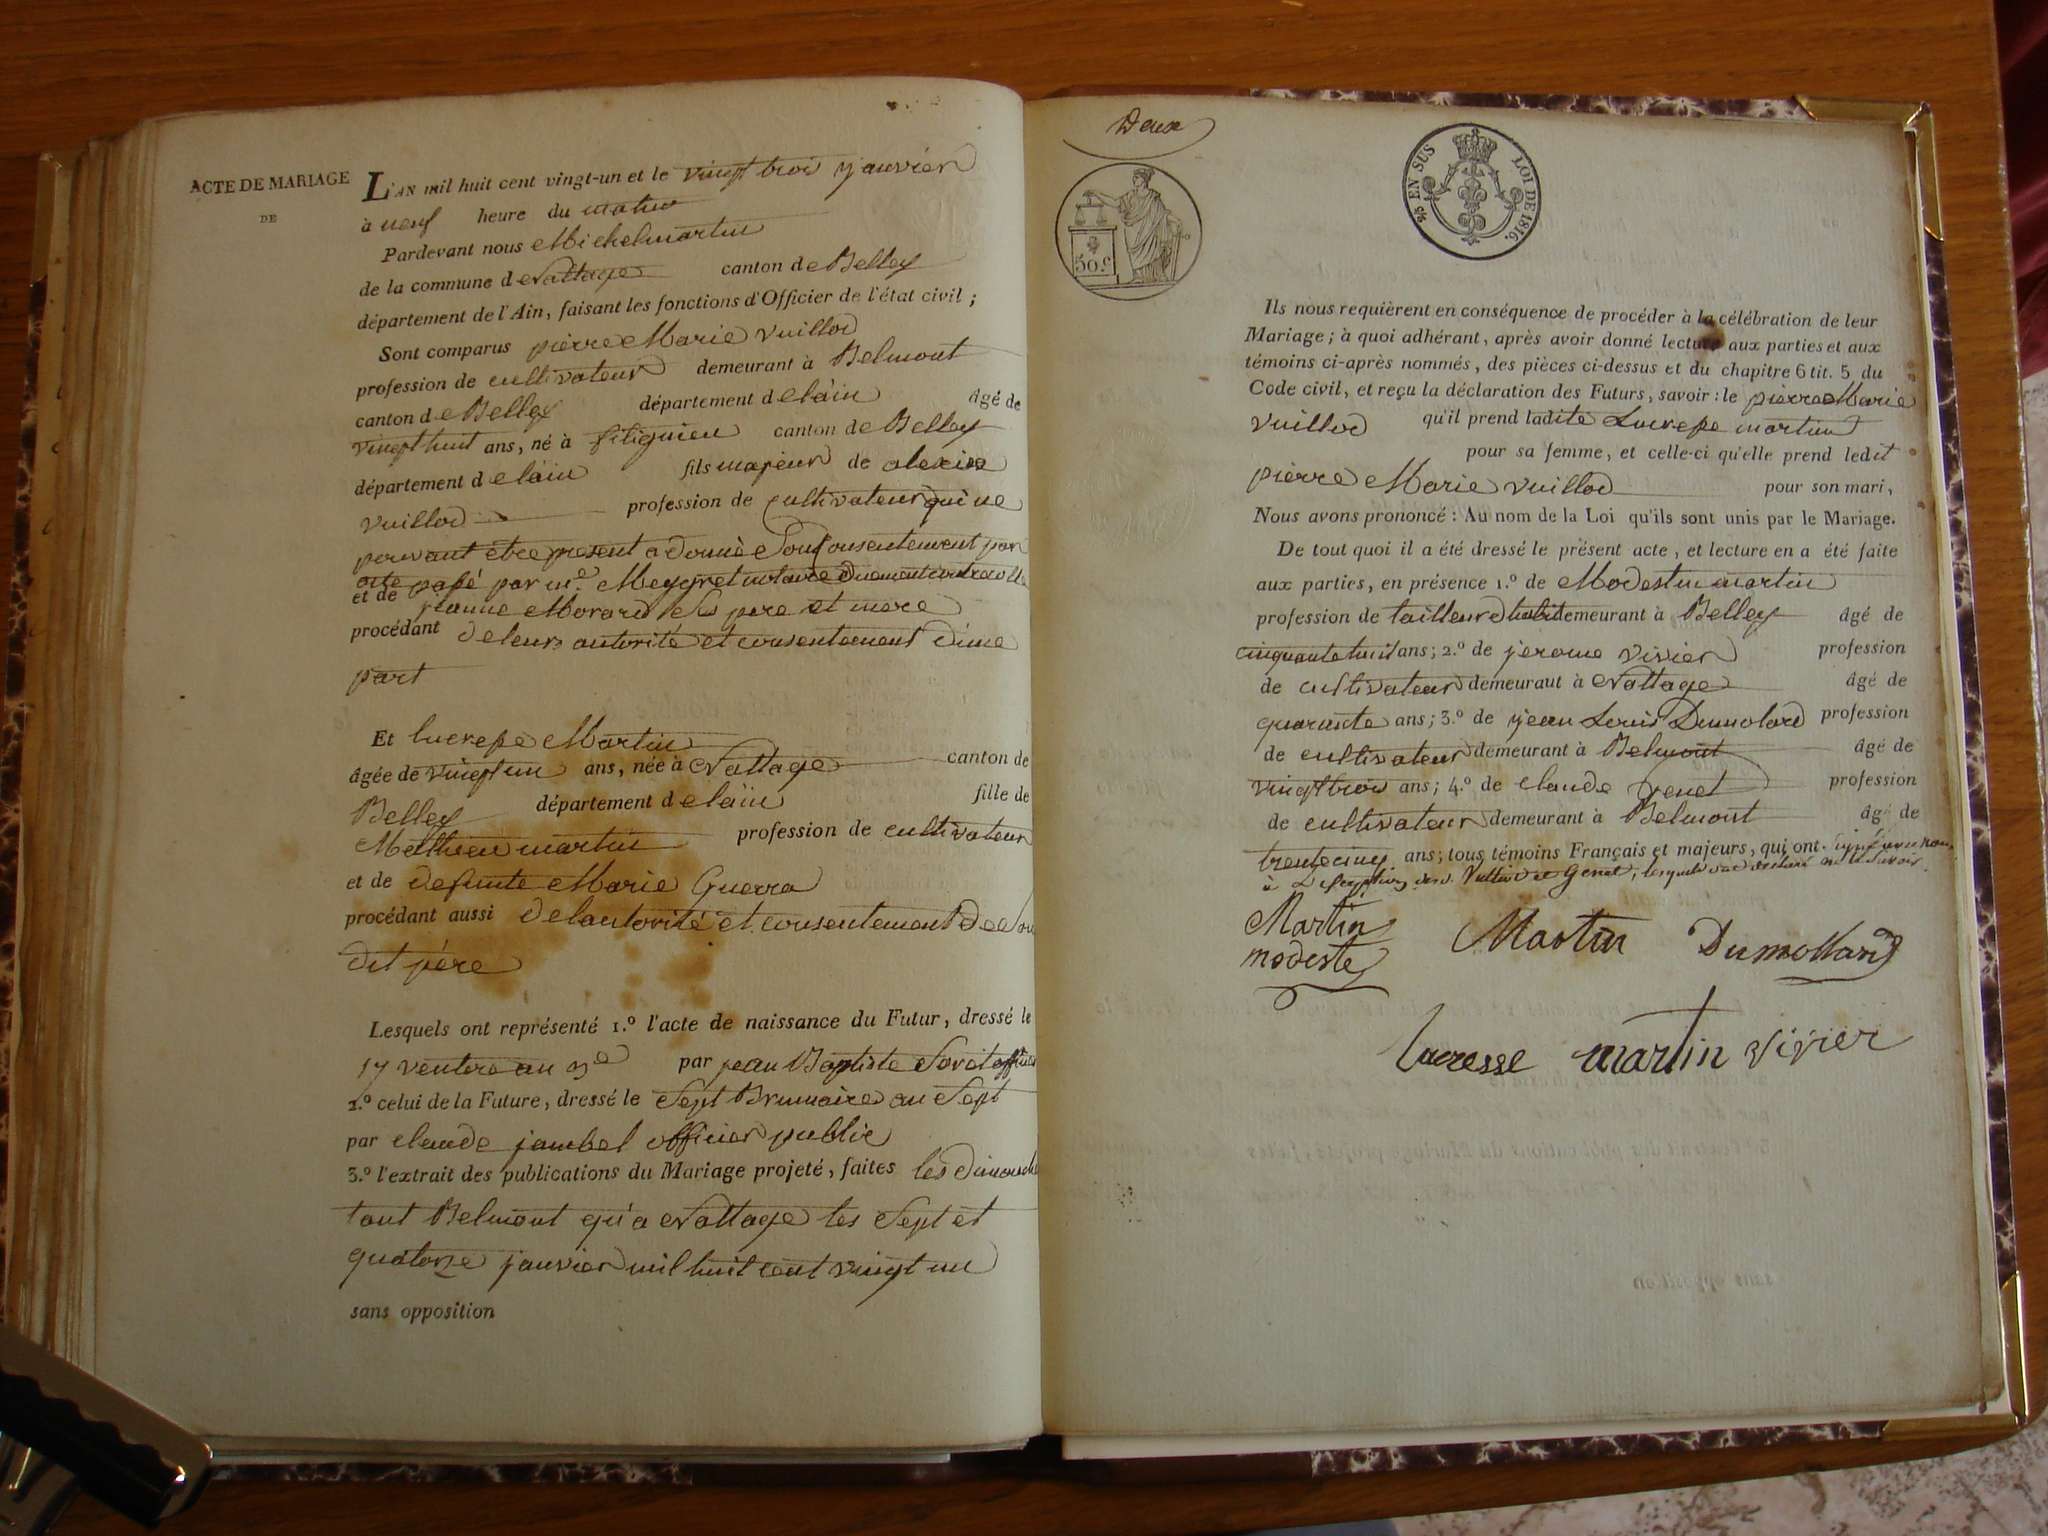 ACTE DE MARIAGE
DE
L'AN mil huit cent vingt-un et le vingt trois janvier
à neuf heure du matin
Pardevant nous Michel martin
de la commune de Nattage canton de Belley
département de l'Ain, faisant les fonctions d'Officier de l'état civil ;
Sont comparus pierre Marie vuillod
profession de cultivateur demeurant à Belmont
canton de Belley département de lain âgé de
vingt huit ans, né à canton de Belley
département de lain fils majeur de alexis
vuillod profession de cultivateur qui ne
pouvant être present a donné Son Consentement par
acte passé par me notaire
et de jeanne Morard Ses pere et mere
procédant de leurs autorité et consentement d'une
part
Et lucresse Martin
âgée de vingt un ans, née à Nattage canton de
Belley département de lain fille de
Mathieu martin profession de cultivateur
et de defunte Marie Guerra
procédant aussi de lautorité et consentement de Son
dit père
Lesquels ont représenté 1.º l'acte de naissance du Futur, dressé le
17 ventose an 3e par jean Baptiste officier
2.º celui de la Future, dressé le Sept Brumaire an Sept
par claude jambel officier public
3.º l'extrait des publications du Mariage projeté, faites les dimanche
tant Belmont qu'a Nattage les Sept et
quatorze janvier mil huit cent vingt un
sans opposition
Deux
EN SUS LOI DE 1816.
50 c
Ils nous requièrent en conséquence de procéder à la célébration de leur
Mariage ; à quoi adhérant, après avoir donné lecture aux parties et aux
témoins ci-après nommés, des pièces ci-dessus et du chapitre 6 tit. 5 du
Code civil, et reçu la déclaration des Futurs, savoir : le pierre Marie
vuillod qu'il prend ladite Lucresse martin
pour sa femme, et celle-ci qu'elle prend ledit
pierre Marie vuillod pour son mari,
Nous avons prononcé : Au nom de la Loi qu'ils sont unis par le Mariage.
De tout quoi il a été dressé le présent acte, et lecture en a été faite
aux parties, en présence 1.º de Modeste martin
profession de tailleur d'habit demeurant à Belley âgé de
cinquante huit ans ; 2.º de jerome vivier profession
de cultivateur demeurant à Nattage âgé de
quarante ans ; 3.º de jean Louis Dumolard profession
de cultivateur demeurant à Belmont âgé de
vingt trois ans ; 4.º de claude genet profession
de cultivateur demeurant à Belmont âgé de
trente cinq ans ; tous témoins Français et majeurs, qui ont signé avec nous
à et Genet, lesquels ont déclaré ne le savoir
Martin Martin Dumollard
modeste
lucresse martin vivier